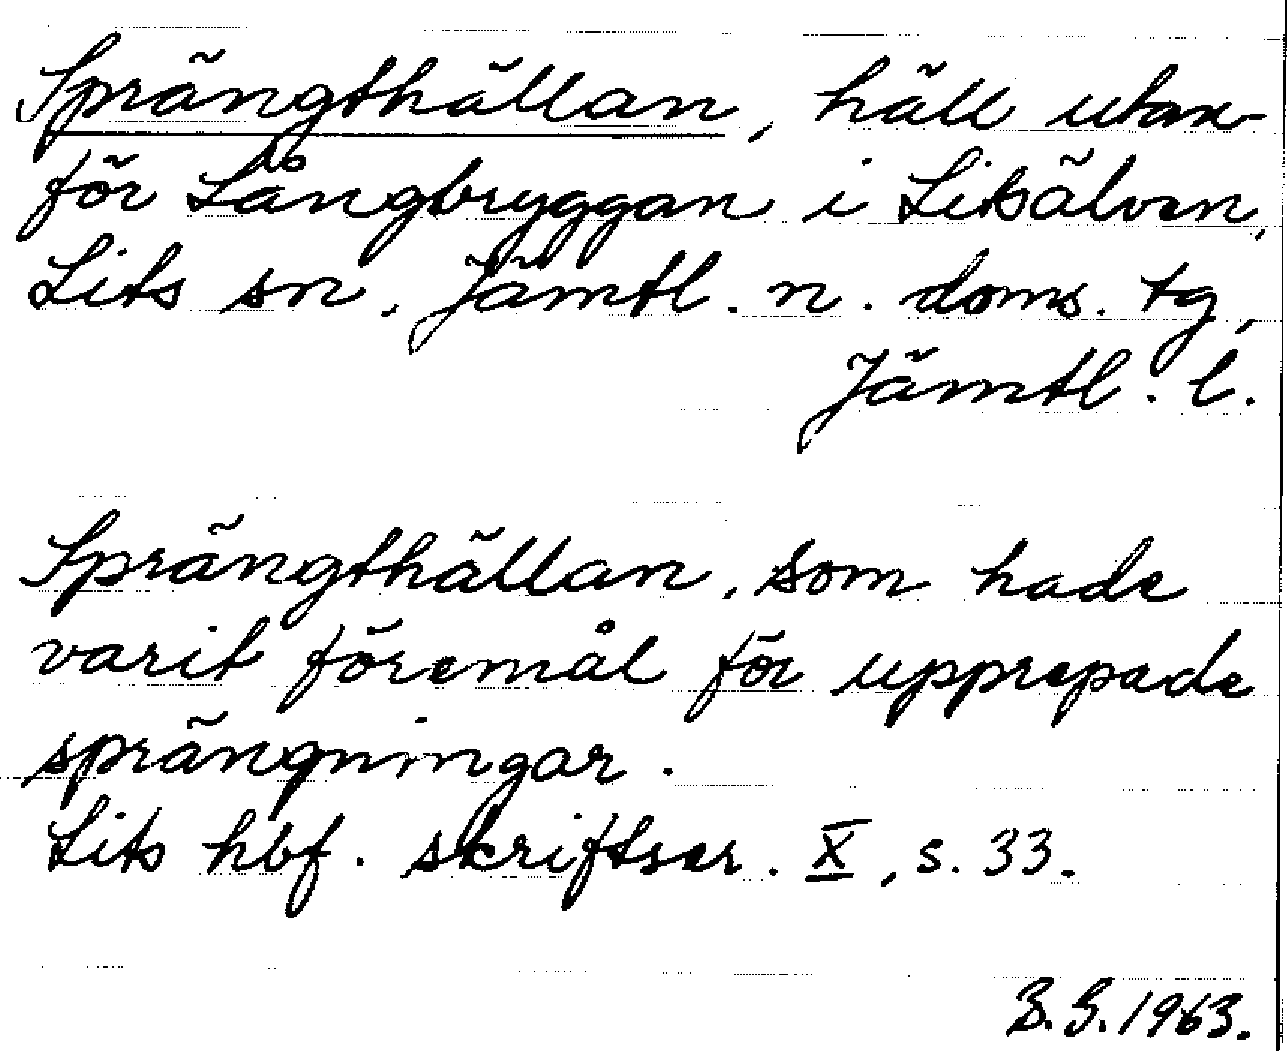 Sprängthällan, häll utan-
för Långbryggan i Litsälven,
Lits sn, Jämtl. n. doms. tg,
Jämtl. l.
Sprängthällan, som hade
varit föremål för upprepade
sprängningar.
Lits hbf. skriftser. X, s. 33.
B.G. 1963.